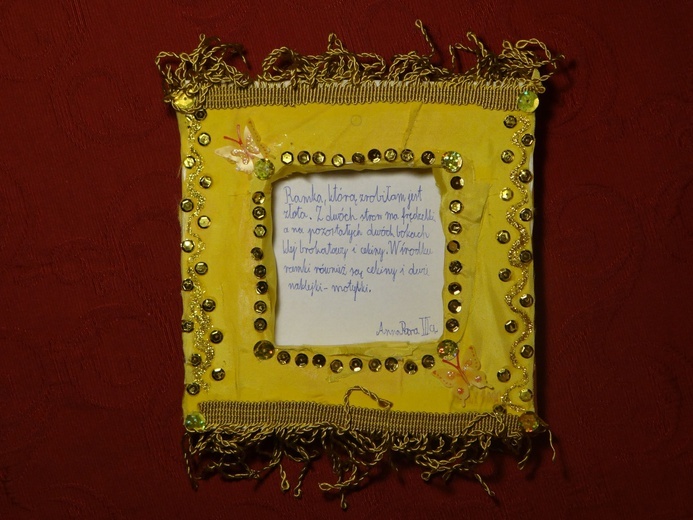 Ramka, którą zrobiłam jest
złota. Z dwóch stron ma frędzelki,
a na pozostałych dwóch bokach
klej brokatowy i cekiny. W środku
ramki również są cekiny i dwie
naklejki - motylki.
Anna IIIa